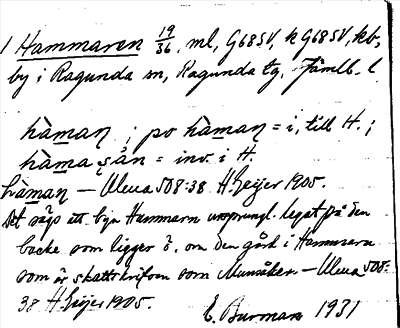 1 Hammaren 19/36, ml, G68SV, k G68SV, kb,
by i Ragunda sn, Ragunda tg, Jämtl. l.
hàmaṇ ; po hàmaṇ = i, till H. ;
hàma = inv. i H.
hàmaṇ — Ulma 508:38 H. Geijer 1905.
Det sägs att byn Hammarn ursprungl. legat på den
backe som ligger ö. om den gård i Hammarn
som är skattskrifven som — Ulma 508:
38 H. Geijer 1905.
E. Burman 1931